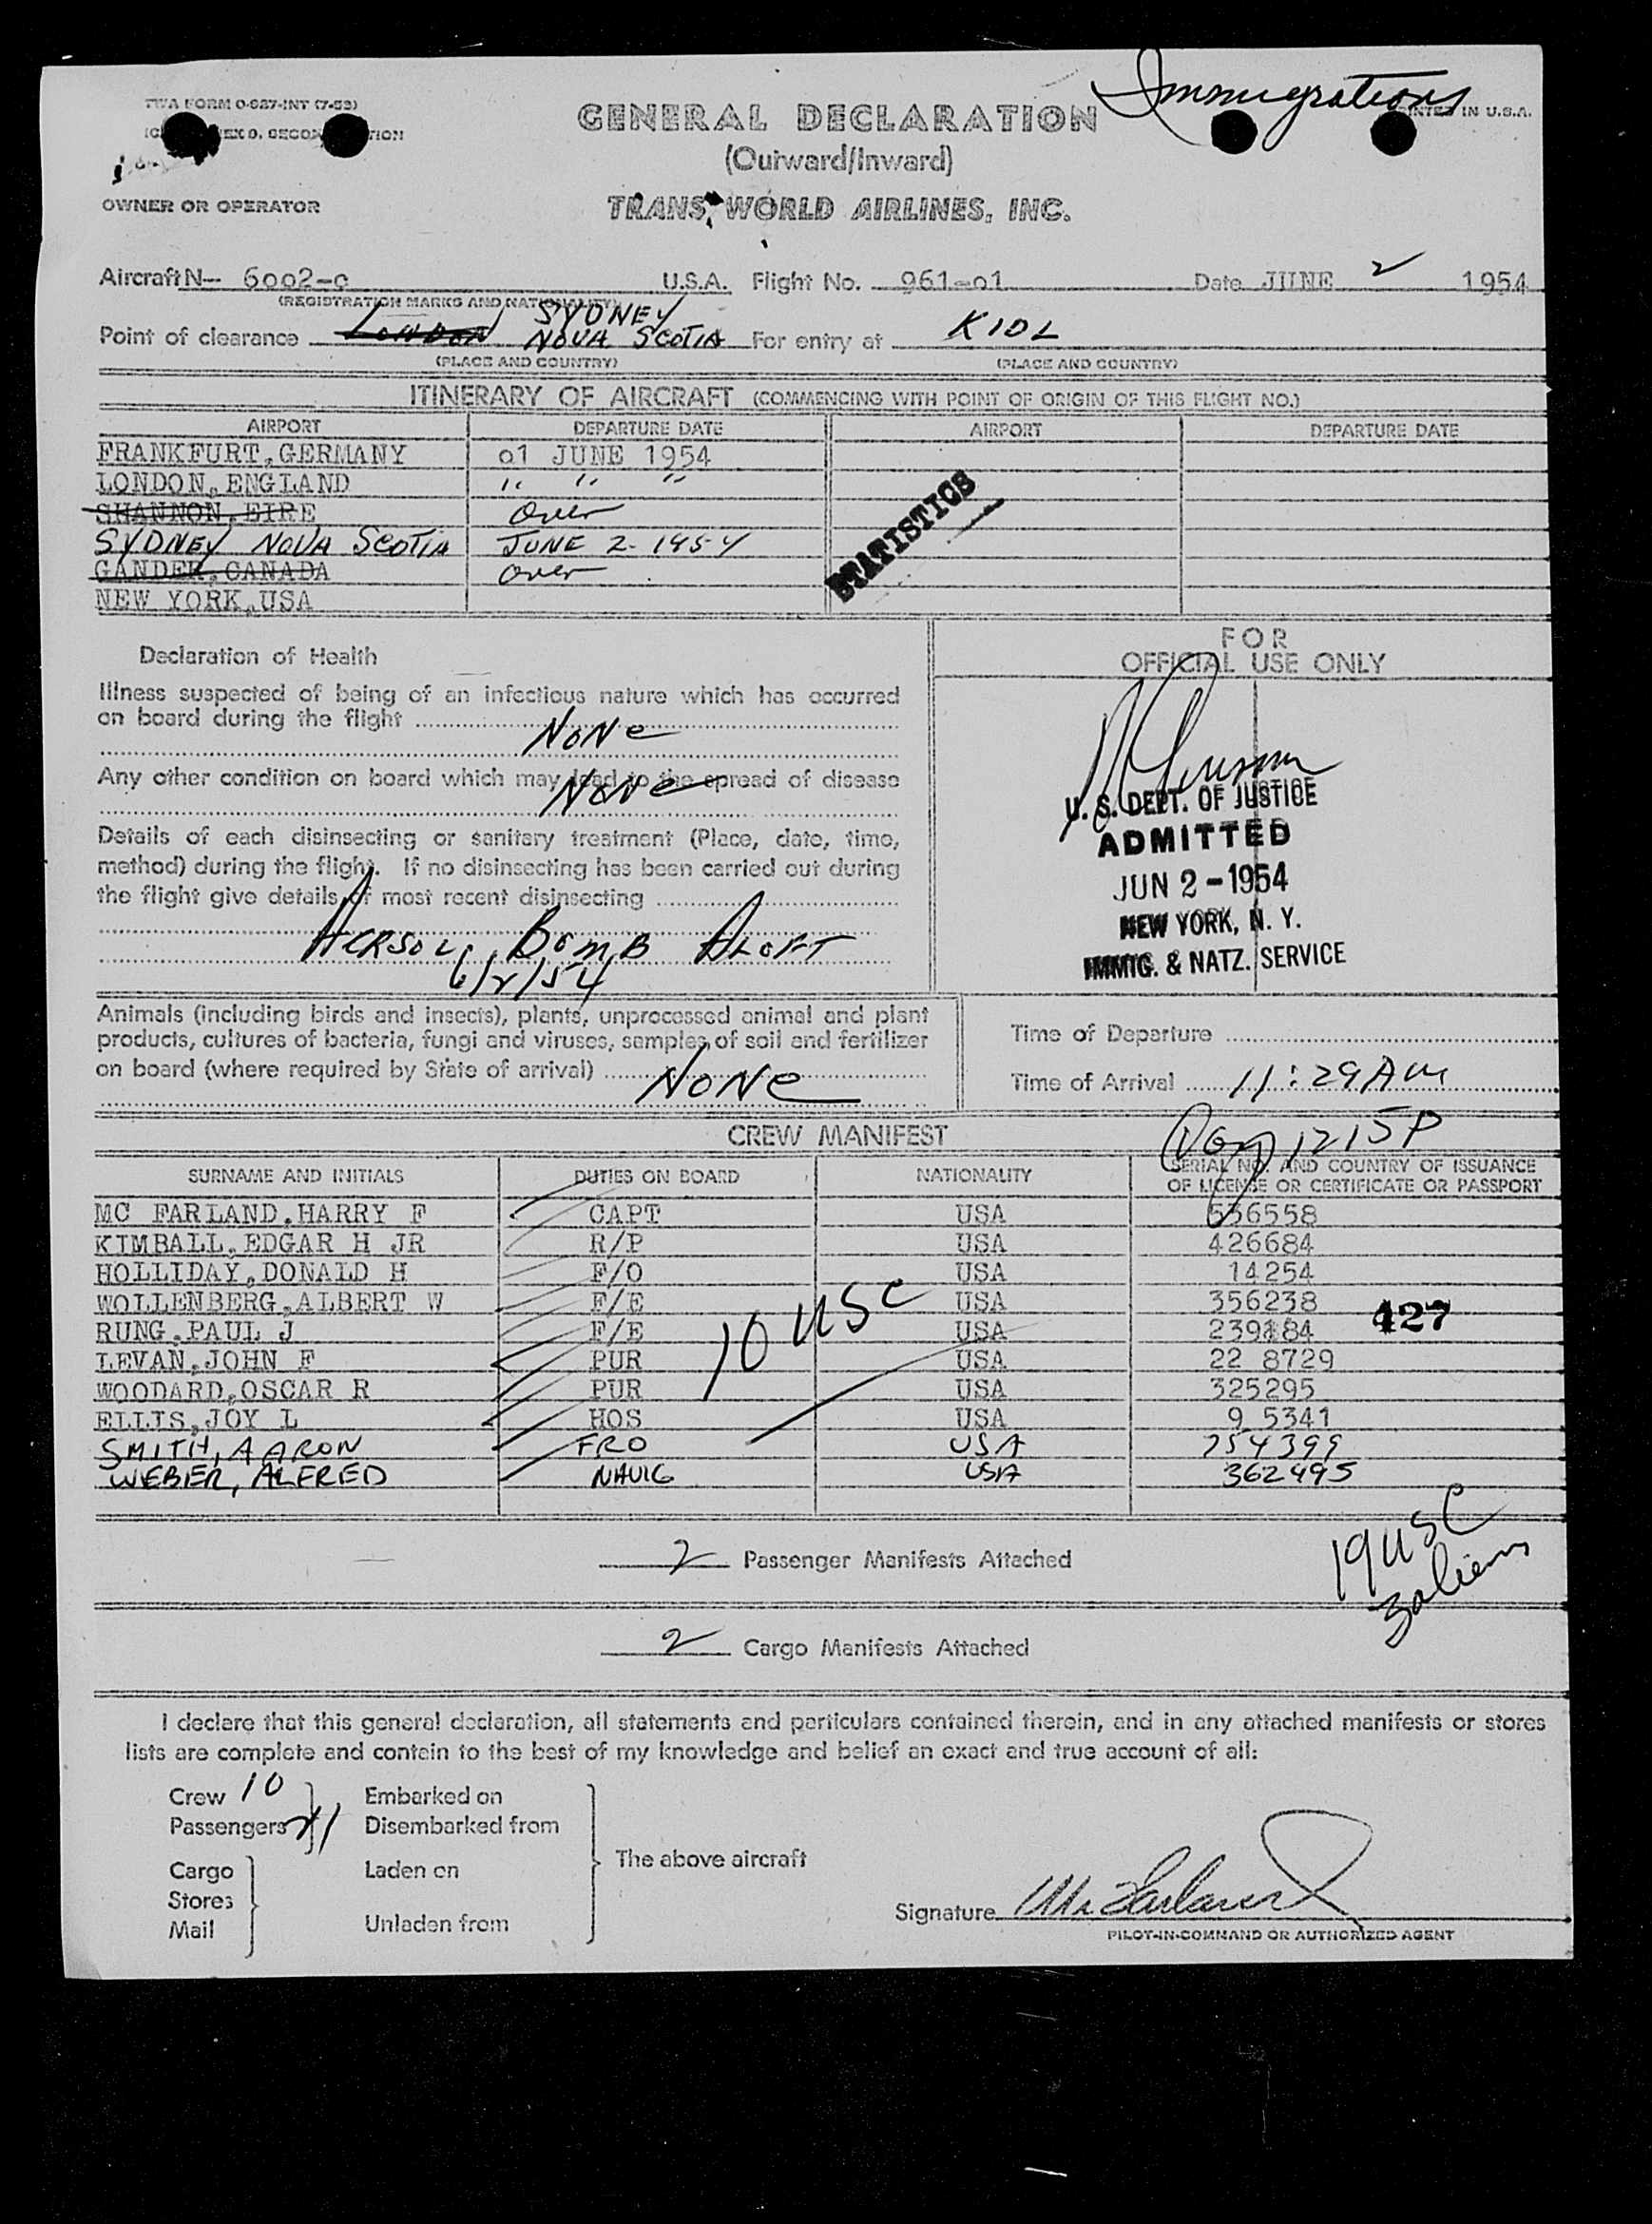 TWA FORM 0-827-INT (7-53)
Immigrations
GENERAL DECLARATION
IN U.S.A.
(Outward/Inward)
OWNER OR OPERATOR
TRANS WORLD AIRLINES, INC.
Aircraft N- 6002-c U.S.A. Flight No. 961-01 Date JUNE 2 1954
(REGISTRATION MARKS AND NATIONALITY)
SYDNEY
Point of clearance LONDON NOVA SCOTIA For entry at KIDL
(PLACE AND COUNTRY) (PLACE AND COUNTRY)
ITINERARY OF AIRCRAFT (COMMENCING WITH POINT OF ORIGIN OF THIS FLIGHT NO.)
AIRPORT DEPARTURE DATE AIRPORT DEPARTURE DATE
FRANKFURT,GERMANY 01 JUNE 1954
LONDON,ENGLAND " " "
SHANNON,EIRE Over
SYDNEY NOVA SCOTIA JUNE 2-1954
GANDER,CANADA Over
NEW YORK,USA
STATISTICS
Declaration of Health
Illness suspected of being of an infectious nature which has occurred
on board during the flight
NONe
Any other condition on board which may lead to the spread of disease
NoNe
Details of each disinsecting or sanitary treatment (Place, date, time,
method) during the flight. If no disinsecting has been carried out during
the flight give details of most recent disinsecting
AERSOL BOMB ALOFT
6/2/54
FOR
OFFICIAL USE ONLY
U. S. DEPT. OF JUSTICE
ADMITTED
JUN 2 - 1954
NEW YORK, N. Y.
IMMIG. & NATZ. SERVICE
Animals (including birds and insects), plants, unprocessed animal and plant
products, cultures of bacteria, fungi and viruses, samples of soil and fertilizer
on board (where required by State of arrival)
NONe
Time of Departure
Time of Arrival 11:29 AM
1215P
CREW MANIFEST
SURNAME AND INITIALS DUTIES ON BOARD NATIONALITY SERIAL NO. AND COUNTRY OF ISSUANCE
OF LICENSE OR CERTIFICATE OR PASSPORT
MC FARLAND,HARRY F CAPT USA 536558
KIMBALL,EDGAR H JR R/P USA 426684
HOLLIDAY,DONALD H F/O USA 14254
WOLLENBERG,ALBERT W F/E USA 356238
RUNG,PAUL J F/E USA 239184
LEVAN,JOHN F PUR USA 22 8729
WOODARD,OSCAR R PUR USA 325295
ELLIS,JOY L HOS USA 9 5341
SMITH, AARON FRO USA 254399
WEBER, ALFRED NAVIG USA 362495
10 USC
427
19 USC
2 aliens
2 Passenger Manifests Attached
2 Cargo Manifests Attached
I declare that this general declaration, all statements and particulars contained therein, and in any attached manifests or stores
lists are complete and contain to the best of my knowledge and belief an exact and true account of all:
Crew 10 Embarked on
Passengers 21 Disembarked from
The above aircraft
Cargo Laden on
Stores
Mail Unladen from
Signature McFarland
PILOT-IN-COMMAND OR AUTHORIZED AGENT